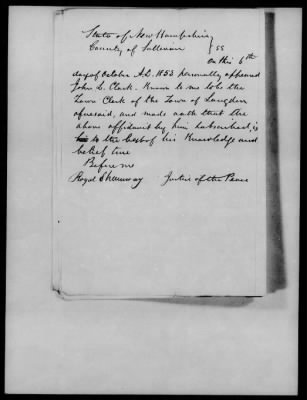 State of New Hampshire
County of Sullivan } SS
On this 6th
day of October A.D. 1853 personally appeared
John L. Clark. Know to me to be the
Town Clerk of the Town of Langdon
aforesaid, and made oath that the
above affidavit by him subscribed, is
to the best of his Knowledge and
belief true
Before me
Royal Shumway Justice of the Peace